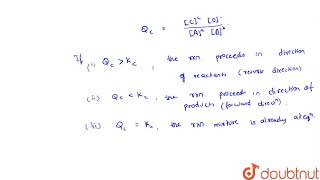 Qc = [C]ᶜ [D]ᵈ / [A]ᵃ [B]ᵇ
If (i) Qc > Kc , the rxn proceeds in direction
of reactants (reverse direction)
(ii) Qc < Kc , the rxn. proceeds in direction of
products (forward direcⁿ).
(iii) Qc = Kc , the rxn mixture is already at eqᵐ.
doubtnut